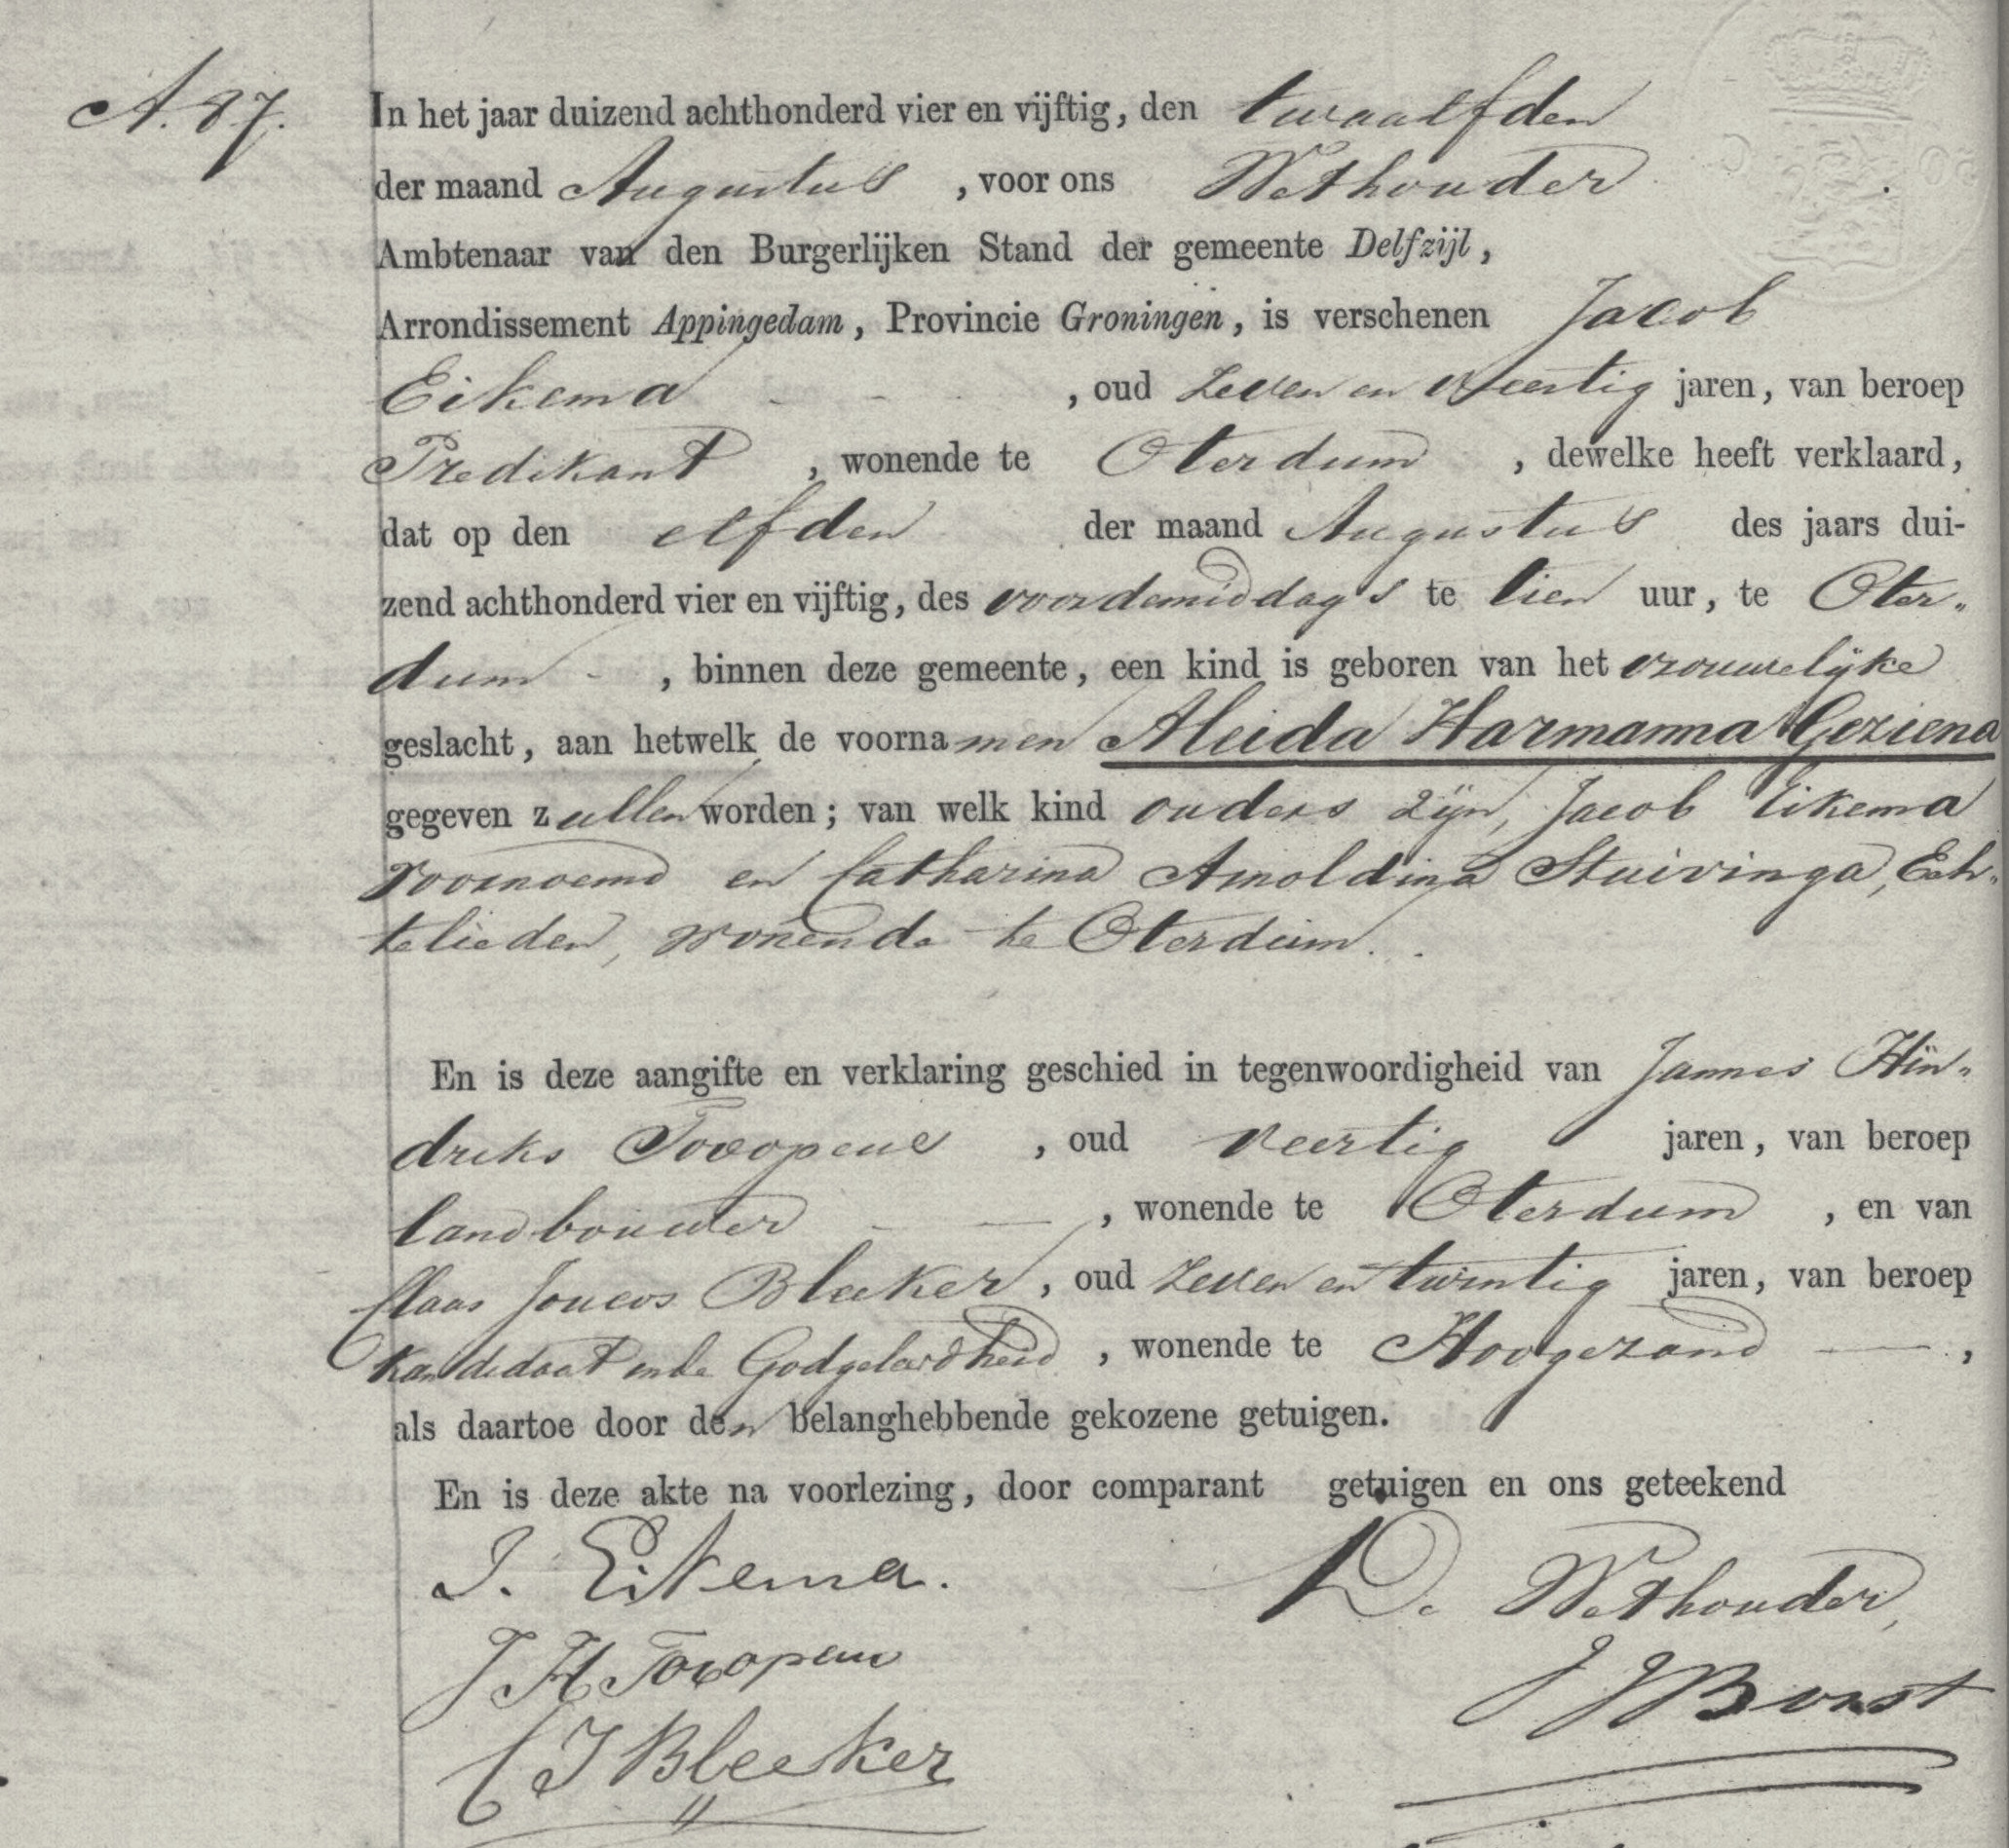 A. 87.
In het jaar duizend achthonderd vier en vijftig, den twaalfden
der maand Augustus , voor ons Wethouder
Ambtenaar van den Burgerlijken Stand der gemeente Delfzijl,
Arrondissement Appingedam, Provincie Groningen, is verschenen Jacob
Eikema , oud zeven en veertig jaren, van beroep
Predikant , wonende te Oterdum , dewelke heeft verklaard,
dat op den elfden der maand Augustus des jaars dui-
zend achthonderd vier en vijftig, des voordemiddags te tien uur, te Oter-
dum - , binnen deze gemeente, een kind is geboren van het vrouwelijke
geslacht, aan hetwelk de voornamen Aleida Harmanna Geziena
gegeven zullen worden; van welk kind ouders zijn, Jacob Eikema
voornoemd en Catharina Arnoldina Stuivinga, Ech-
telieden, wonende te Oterdum.
En is deze aangifte en verklaring geschied in tegenwoordigheid van Jannes Hin-
driks Toxopeus , oud veertig jaren, van beroep
landbouwer , wonende te Oterdum , en van
Claas Bleeker , oud zeven en twintig jaren, van beroep
Kandidaat in de Godgeleerdheid , wonende te Hoogezand ,
als daartoe door den belanghebbende gekozene getuigen.
En is deze akte na voorlezing, door comparant getuigen en ons geteekend
J. Eikema.
D. Wethouder,
J H Toxopeus
J J Borst
C J Bleeker